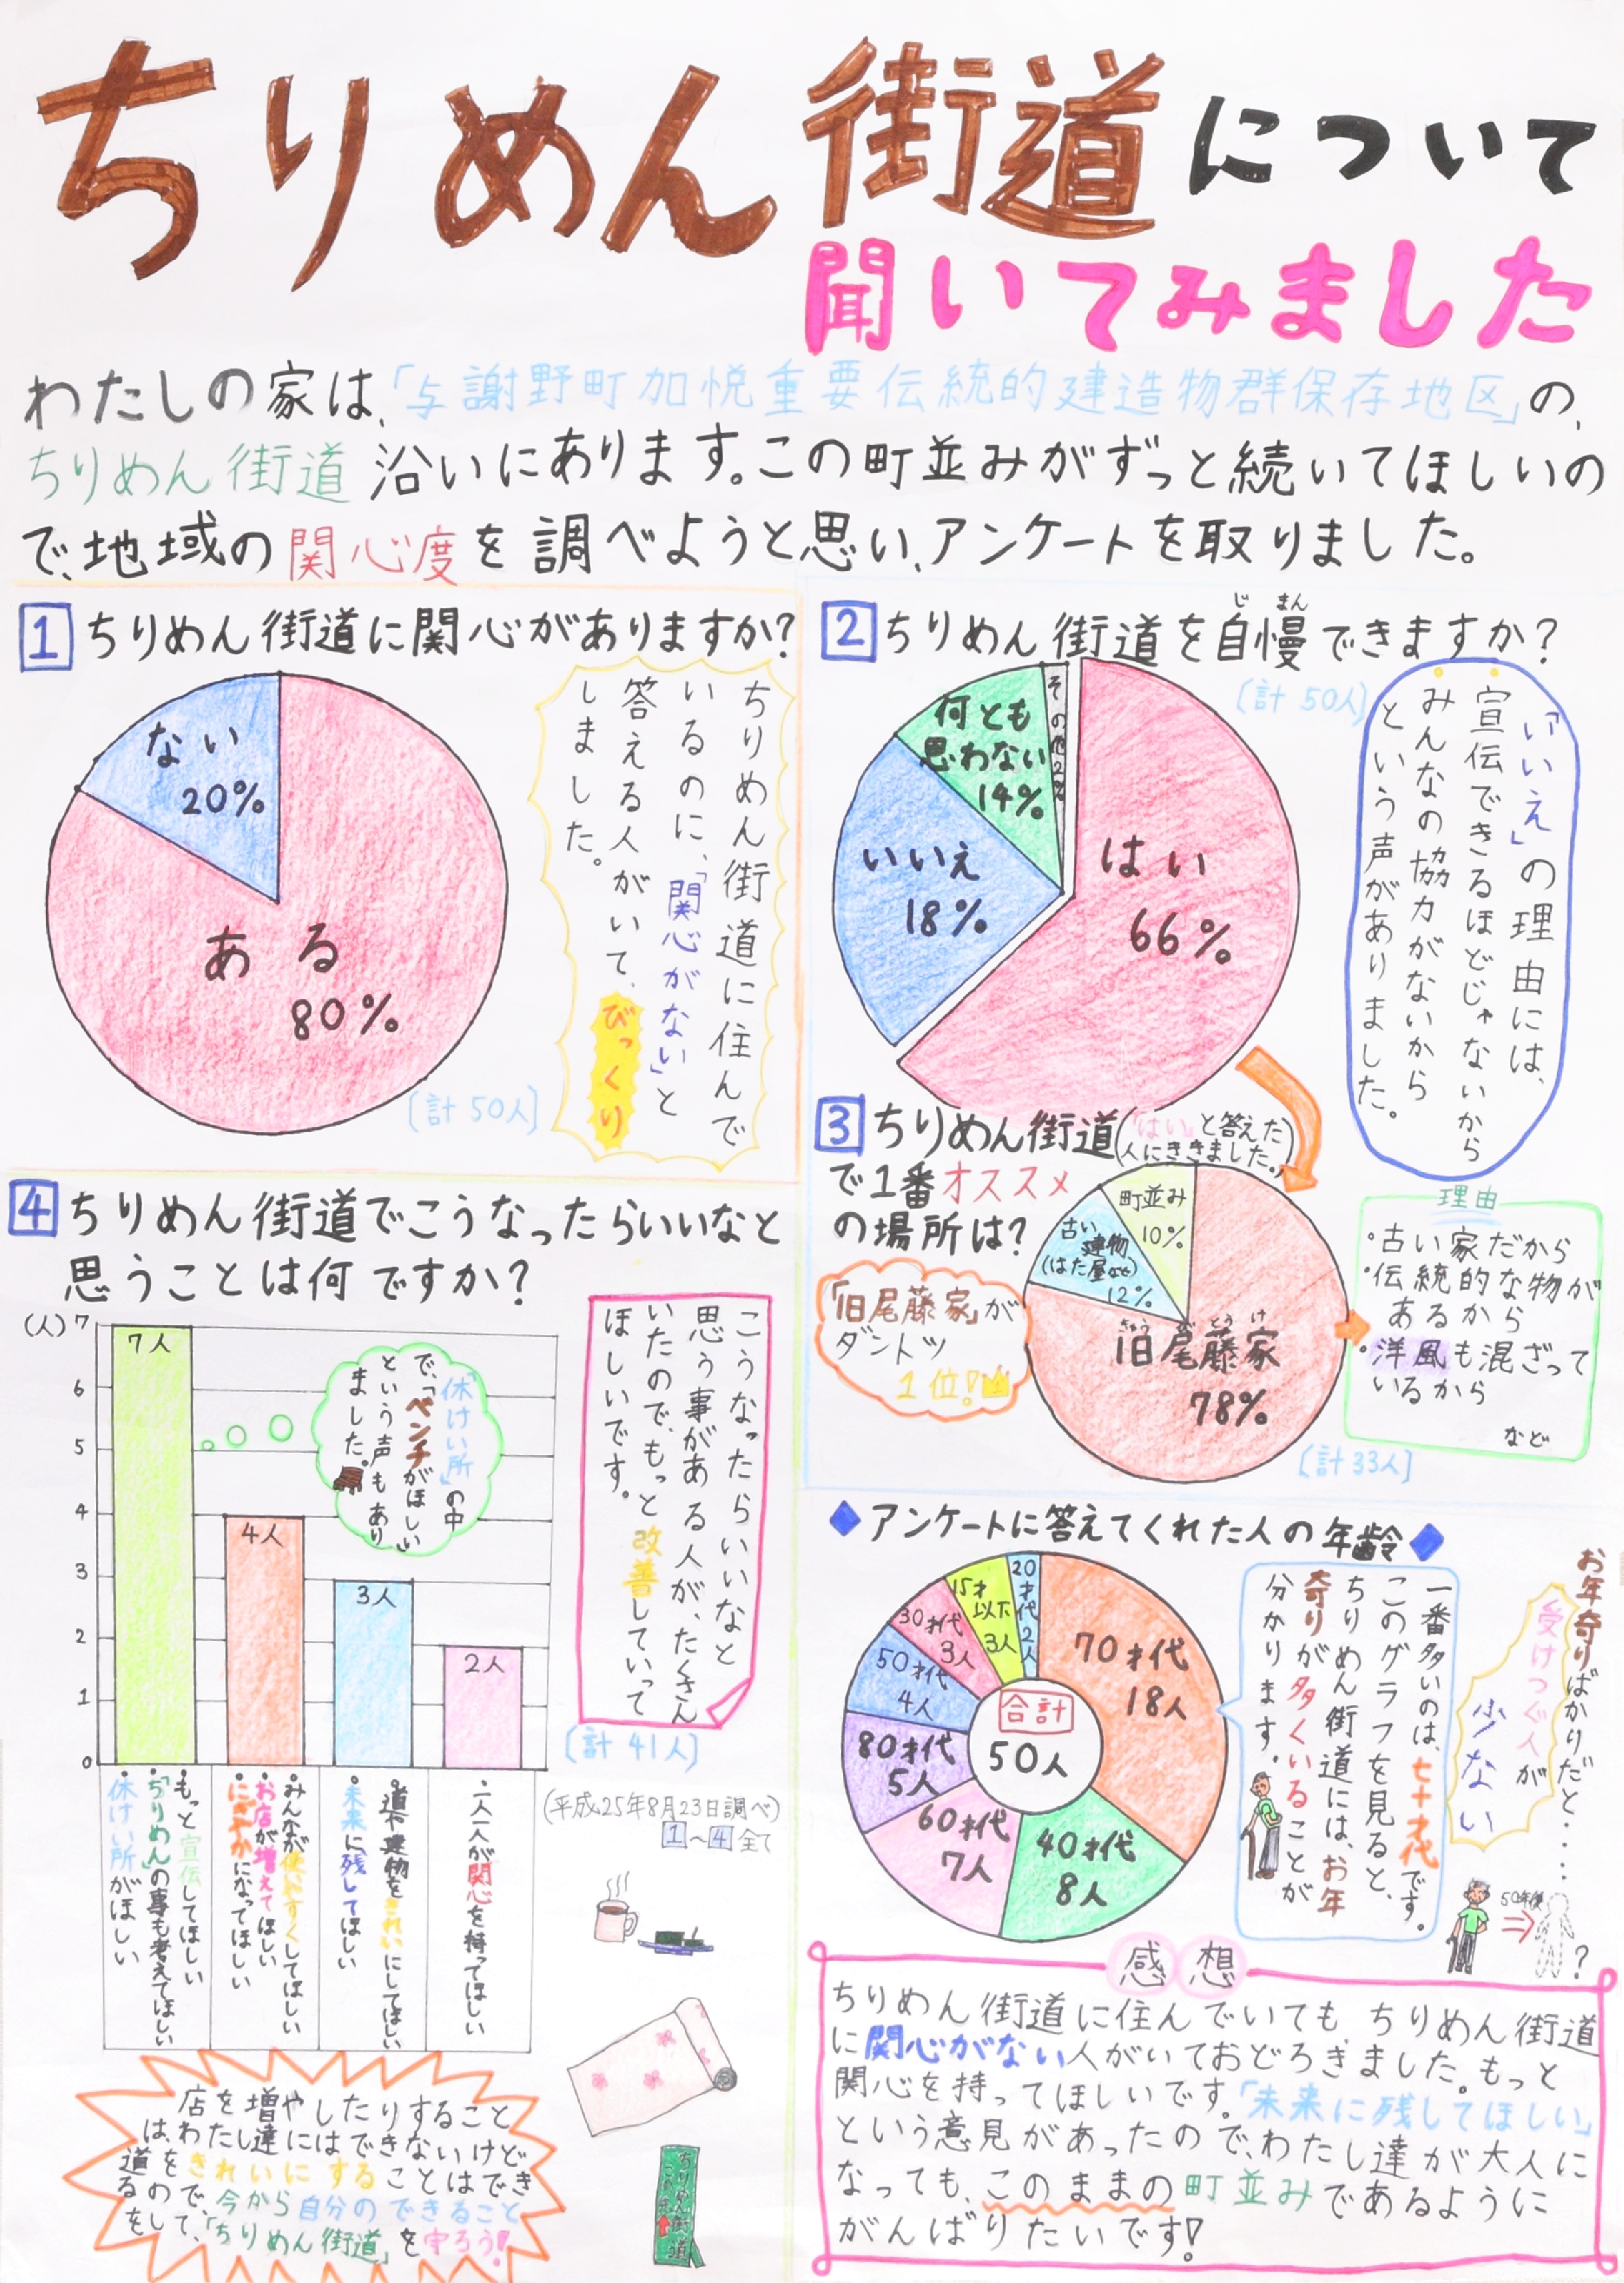 ちりめん街道について
聞いてみました
わたしの家は、「与謝野町加悦重要伝統的建造物群保存地区」の、
ちりめん街道沿いにあります。この町並みがずっと続いてほしいの
で、地域の関心度を調べようと思い、アンケートを取りました。
1 ちりめん街道に関心がありますか?
ない
20%
ある
80%
[計50人]
ちりめん街道に住んで
いるのに、「関心がない」と
答える人がいて、びっくり
しました。
2 ちりめん街道を自慢できますか?
じ まん
[計50人]
はい
66%
いいえ
18%
何とも
思わない
14%
その他2%
「いいえ」の理由には、
宣伝できるほどじゃないから
みんなの協力がないから
という声がありました。
3 ちりめん街道
(「はい」と答えた
人にききました。)
で1番オススメ
の場所は?
「旧尾藤家」が
ダントツ
1位!
町並み
10%
古い
建物
(はた屋など)
12%
きゅう び とう け
旧尾藤家
78%
[計33人]
理由
・古い家だから
・伝統的な物が
あるから
・洋風も混ざって
いるから
など
4 ちりめん街道でこうなったらいいなと
思うことは何ですか?
(人)
7
6
5
4
3
2
1
0
7人
4人
3人
2人
「休けい所」の中
で、「ベンチがほしい」
という声もあり
ました。
こうなったらいいなと
思う事がある人が、たくさん
いたので、もっと改善していって
ほしいです。
[計41人]
・もっと宣伝してほしい
・「ちりめん」の事も考えてほしい
・休けい所がほしい
・みんなが使いやすくしてほしい
・お店が増えてほしい
・にぎやかになってほしい
・道や建物をきれいにしてほしい
・未来に残してほしい
・一人一人が関心を持ってほしい
(平成25年8月23日調べ)
1～4全て
店を増やしたりすること
は、わたし達にはできないけど
道をきれいにすることはでき
るので、今から自分のできること
をして、「ちりめん街道」を守ろう!
ちりめん街道
この先
◆アンケートに答えてくれた人の年齢◆
合計
50人
70才代
18人
40才代
8人
60才代
7人
80才代
5人
50才代
4人
30才代
3人
15才
以下
3人
20才代2人
一番多いのは、七十才代です。
このグラフを見ると、
ちりめん街道には、お年
寄りが多くいることが
分かります。
お年寄りばかりだと・・・・
受けつぐ人が
少ない
50年後
?
感想
ちりめん街道に住んでいても、ちりめん街道
に関心がない人がいておどろきました。もっと
関心を持ってほしいです。「未来に残してほしい」
という意見があったので、わたし達が大人に
なっても、このままの町並みであるように
がんばりたいです!